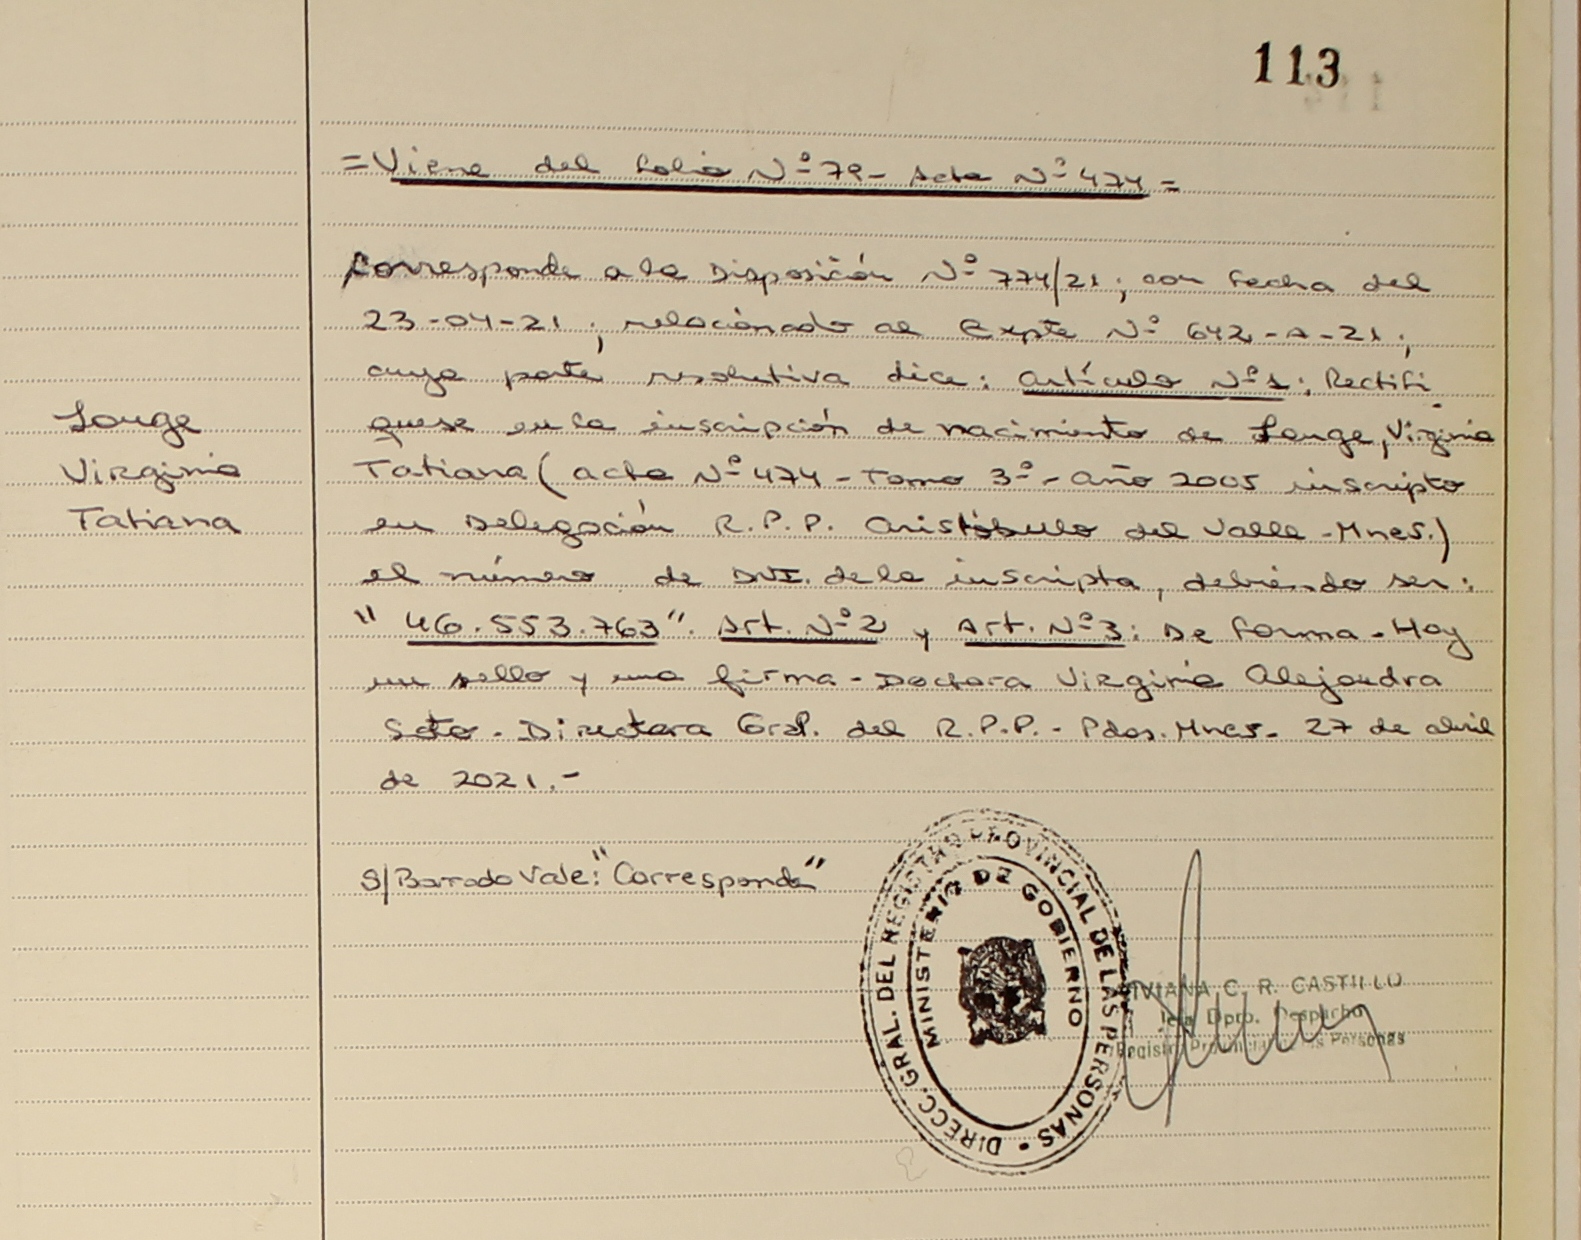 113
=Viene del folio Nº 79- Acta Nº 474=
Corresponde a la Disposición Nº 774/21; con fecha del
23-04-21; relacionado al Expte Nº 642-A-21;
cuya parte resolutiva dice: Artículo Nº1: Rectifi
quese en la inscripción de nacimiento de Longe, Virginia
Tatiana (acta Nº 474 - Tomo 3º - año 2005 inscripto
en Delegación R.P.P. Aristóbulo del Valle - Mnes.)
el número de DNI. de la inscripta, debiendo ser:
"46.553.763". Art. Nº2 y Art. Nº3: De forma - Hay
un sello y una firma - Doctora Virginia Alejandra
Soto - Directora Gral. del R.P.P. - Pdas. Mnes. 27 de abril
de 2021.-
Longe
Virginia
Tatiana
S/Borrado Vale: "Corresponde"
DIRECC. GRAL. DEL REGISTRO PROVINCIAL DE LAS PERSONAS
MINISTERIO DE GOBIERNO
VIVIANA C. R. CASTILLO
Jefa Dpto. Despacho
Registro Provincial de las Personas